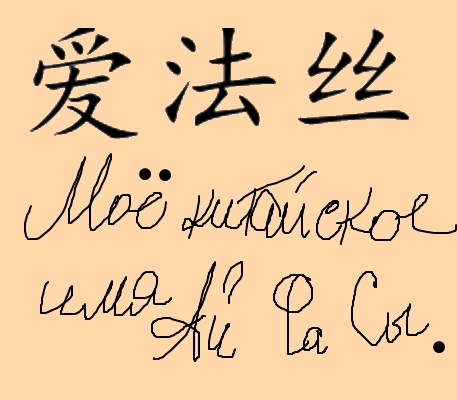 爱法丝
Моё китайское
имя Ай Фа Сы.